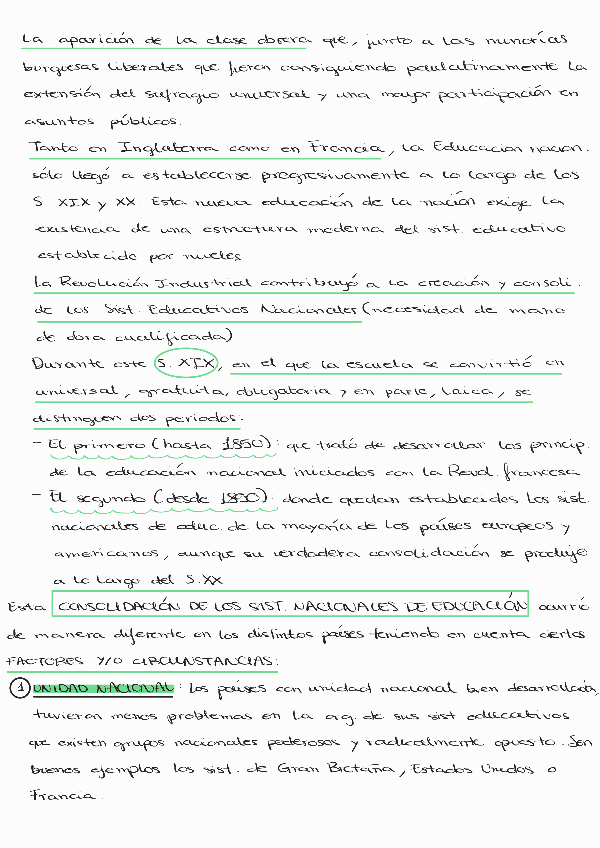 La aparición de la clase obrera que, junto a las minorías
burguesas liberales que fueron consiguiendo paulatinamente la
extensión del sufragio universal y una mayor participación en
asuntos públicos.
Tanto en Inglaterra como en Francia, la Educación nacion.
sólo llegó a establecerse progresivamente a lo largo de los
S. XIX y XX. Esta nueva educación de la nación exige la
existencia de una estructura moderna del sist. educativo
establecido por niveles
La Revolución Industrial contribuyó a la creación y consoli.
de los Sist. Educativos Nacionales (necesidad de mano
de obra cualificada)
Durante este S. XIX, en el que la escuela se convirtió en
universal, gratuita, obligatoria y en parte, laica, se
distinguen dos periodos:
- El primero (hasta 1850): que trató de desarrollar los princip.
de la educación nacional iniciados con la Revol. francesa
- El segundo (desde 1850): donde quedan establecidos los sist.
nacionales de educ. de la mayoría de los países europeos y
americanos, aunque su verdadera consolidación se produjo
a lo largo del S.XX
Esta CONSOLIDACIÓN DE LOS SIST. NACIONALES DE EDUCACIÓN ocurrió
de manera diferente en los distintos países teniendo en cuenta ciertos
FACTORES Y/O CIRCUNSTANCIAS:
1 UNIDAD NACIONAL: los países con unidad nacional bien desarrollada,
tuvieron menos problemas en la org. de sus sist educativos
que existen grupos nacionales poderosos y radicalmente opuesto. Son
buenos ejemplos los sist. de Gran Bretaña, Estados Unidos o
Francia.